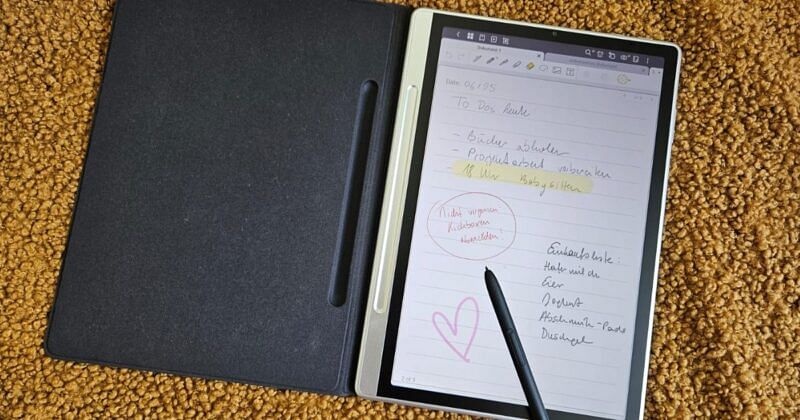 Dokument 1
Date: 06/05
To Dos heute
- Bücher abholen
- Projektarbeit vorbereiten
- 18 Uhr Babysitten
Nicht vergessen
Kickboxen
abmelden!
Einkaufsliste:
Hafermilch
Eier
Joghurt
Abschmink-Pads
Duschgel